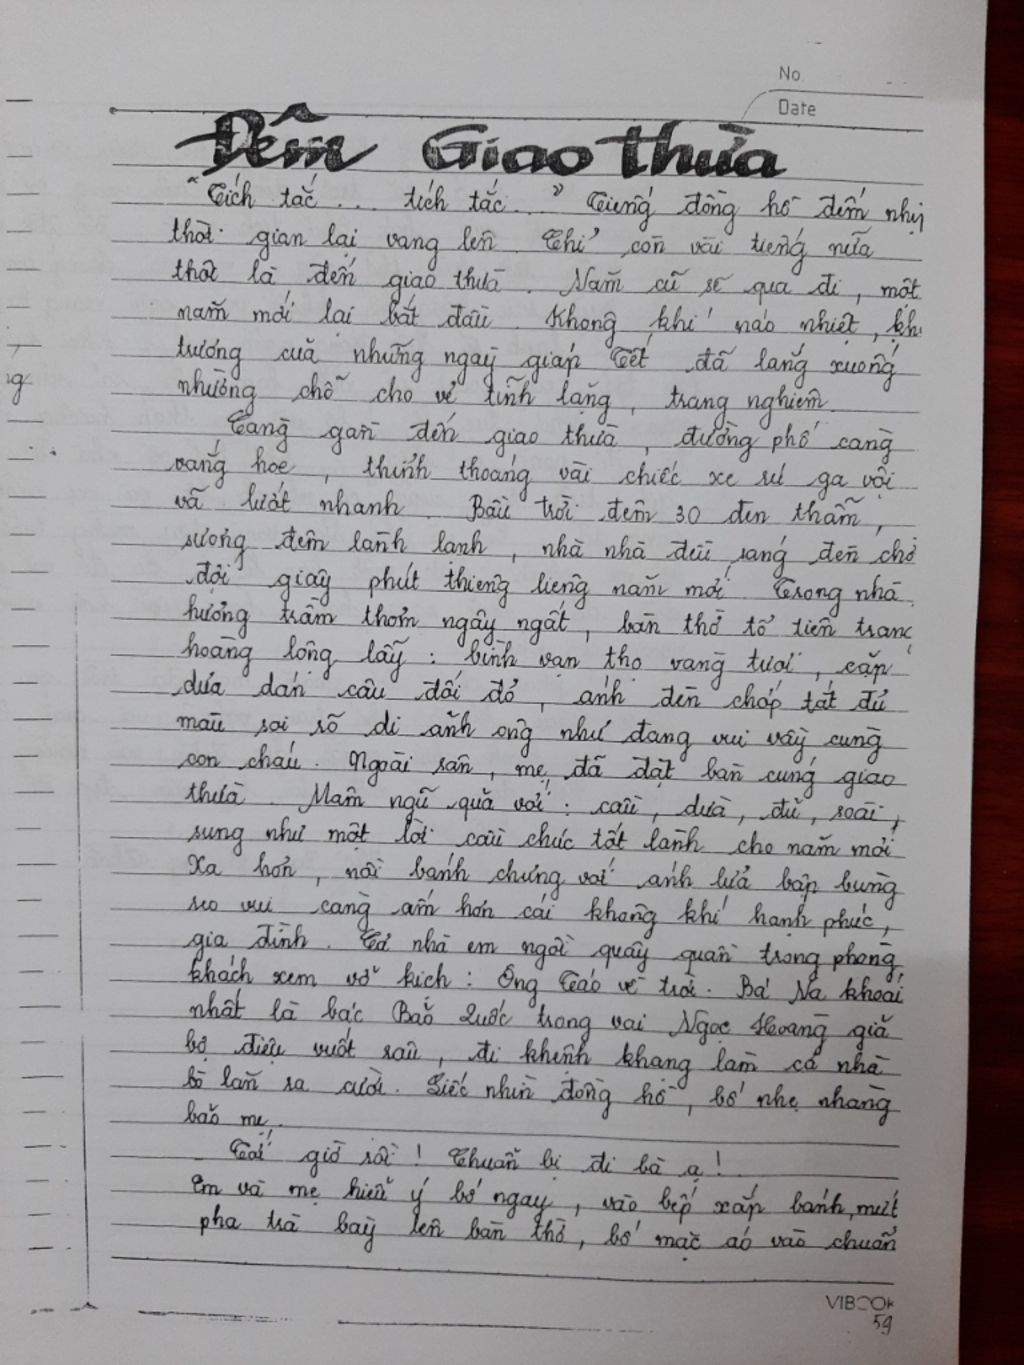 No
Date
Đêm Giao thừa
"Tích tắc... tích tắc..." Tiếng đồng hồ đếm nhịp
thời gian lại vang lên. Chỉ còn vài tiếng nữa
thôi là đến giao thừa. Năm cũ sẽ qua đi, một
năm mới lại bắt đầu. Không khí náo nhiệt, kh
trương của những ngày giáp Tết đã lắng xuống
nhường chỗ cho vẻ tĩnh lặng, trang nghiêm.
Càng gần đến giao thừa, đường phố càng
vắng hoe, thỉnh thoảng vài chiếc xe rú ga vội
vã lướt nhanh. Bầu trời đêm 30 đen thẫm,
sương đêm lành lạnh, nhà nhà đều sáng đèn chờ
đợi giây phút thiêng liêng năm mới. Trong nhà
hương trầm thơm ngây ngất, bàn thờ tổ tiên trang
hoàng lộng lẫy: bình vạn thọ vàng tươi, cặp
dưa dán câu đối đỏ, ánh đèn chớp tắt đủ
màu soi rõ di ảnh ông như đang vui vầy cùng
con cháu. Ngoài sân, mẹ đã đặt bàn cúng giao
thừa. Mâm ngũ quả với: cầu, dừa, đủ, xoài,
sung như một lời cầu chúc tốt lành cho năm mới
Xa hơn, nồi bánh chưng với ánh lửa bập bùng
reo vui càng ấm hơn cái không khí hạnh phúc,
gia đình. Cả nhà em ngồi quây quần trong phòng
khách xem vở kịch: Ông Táo về trời. Bé Na khoái
nhất là bác Bảo Quốc trong vai Ngọc Hoàng giả
bộ điệu vuốt râu, đi khệnh khạng làm cả nhà
bò lăn ra cười. Liếc nhìn đồng hồ, bố nhẹ nhàng
bảo mẹ.
Tới giờ rồi! Chuẩn bị đi bà ạ!
Em và mẹ hiểu ý bố ngay, vào bếp xắp bánh, mứt
pha trà bày lên bàn thờ, bố mặc áo vào chuẩn
VIBOOK
59
ng